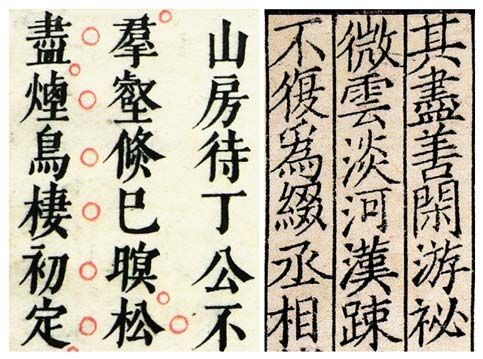 其盡善閑游祕
微雲淡河漢踈
不復為綴丞相
山房待丁公不
羣壑倐巳暝松
盡煙鳥棲初定